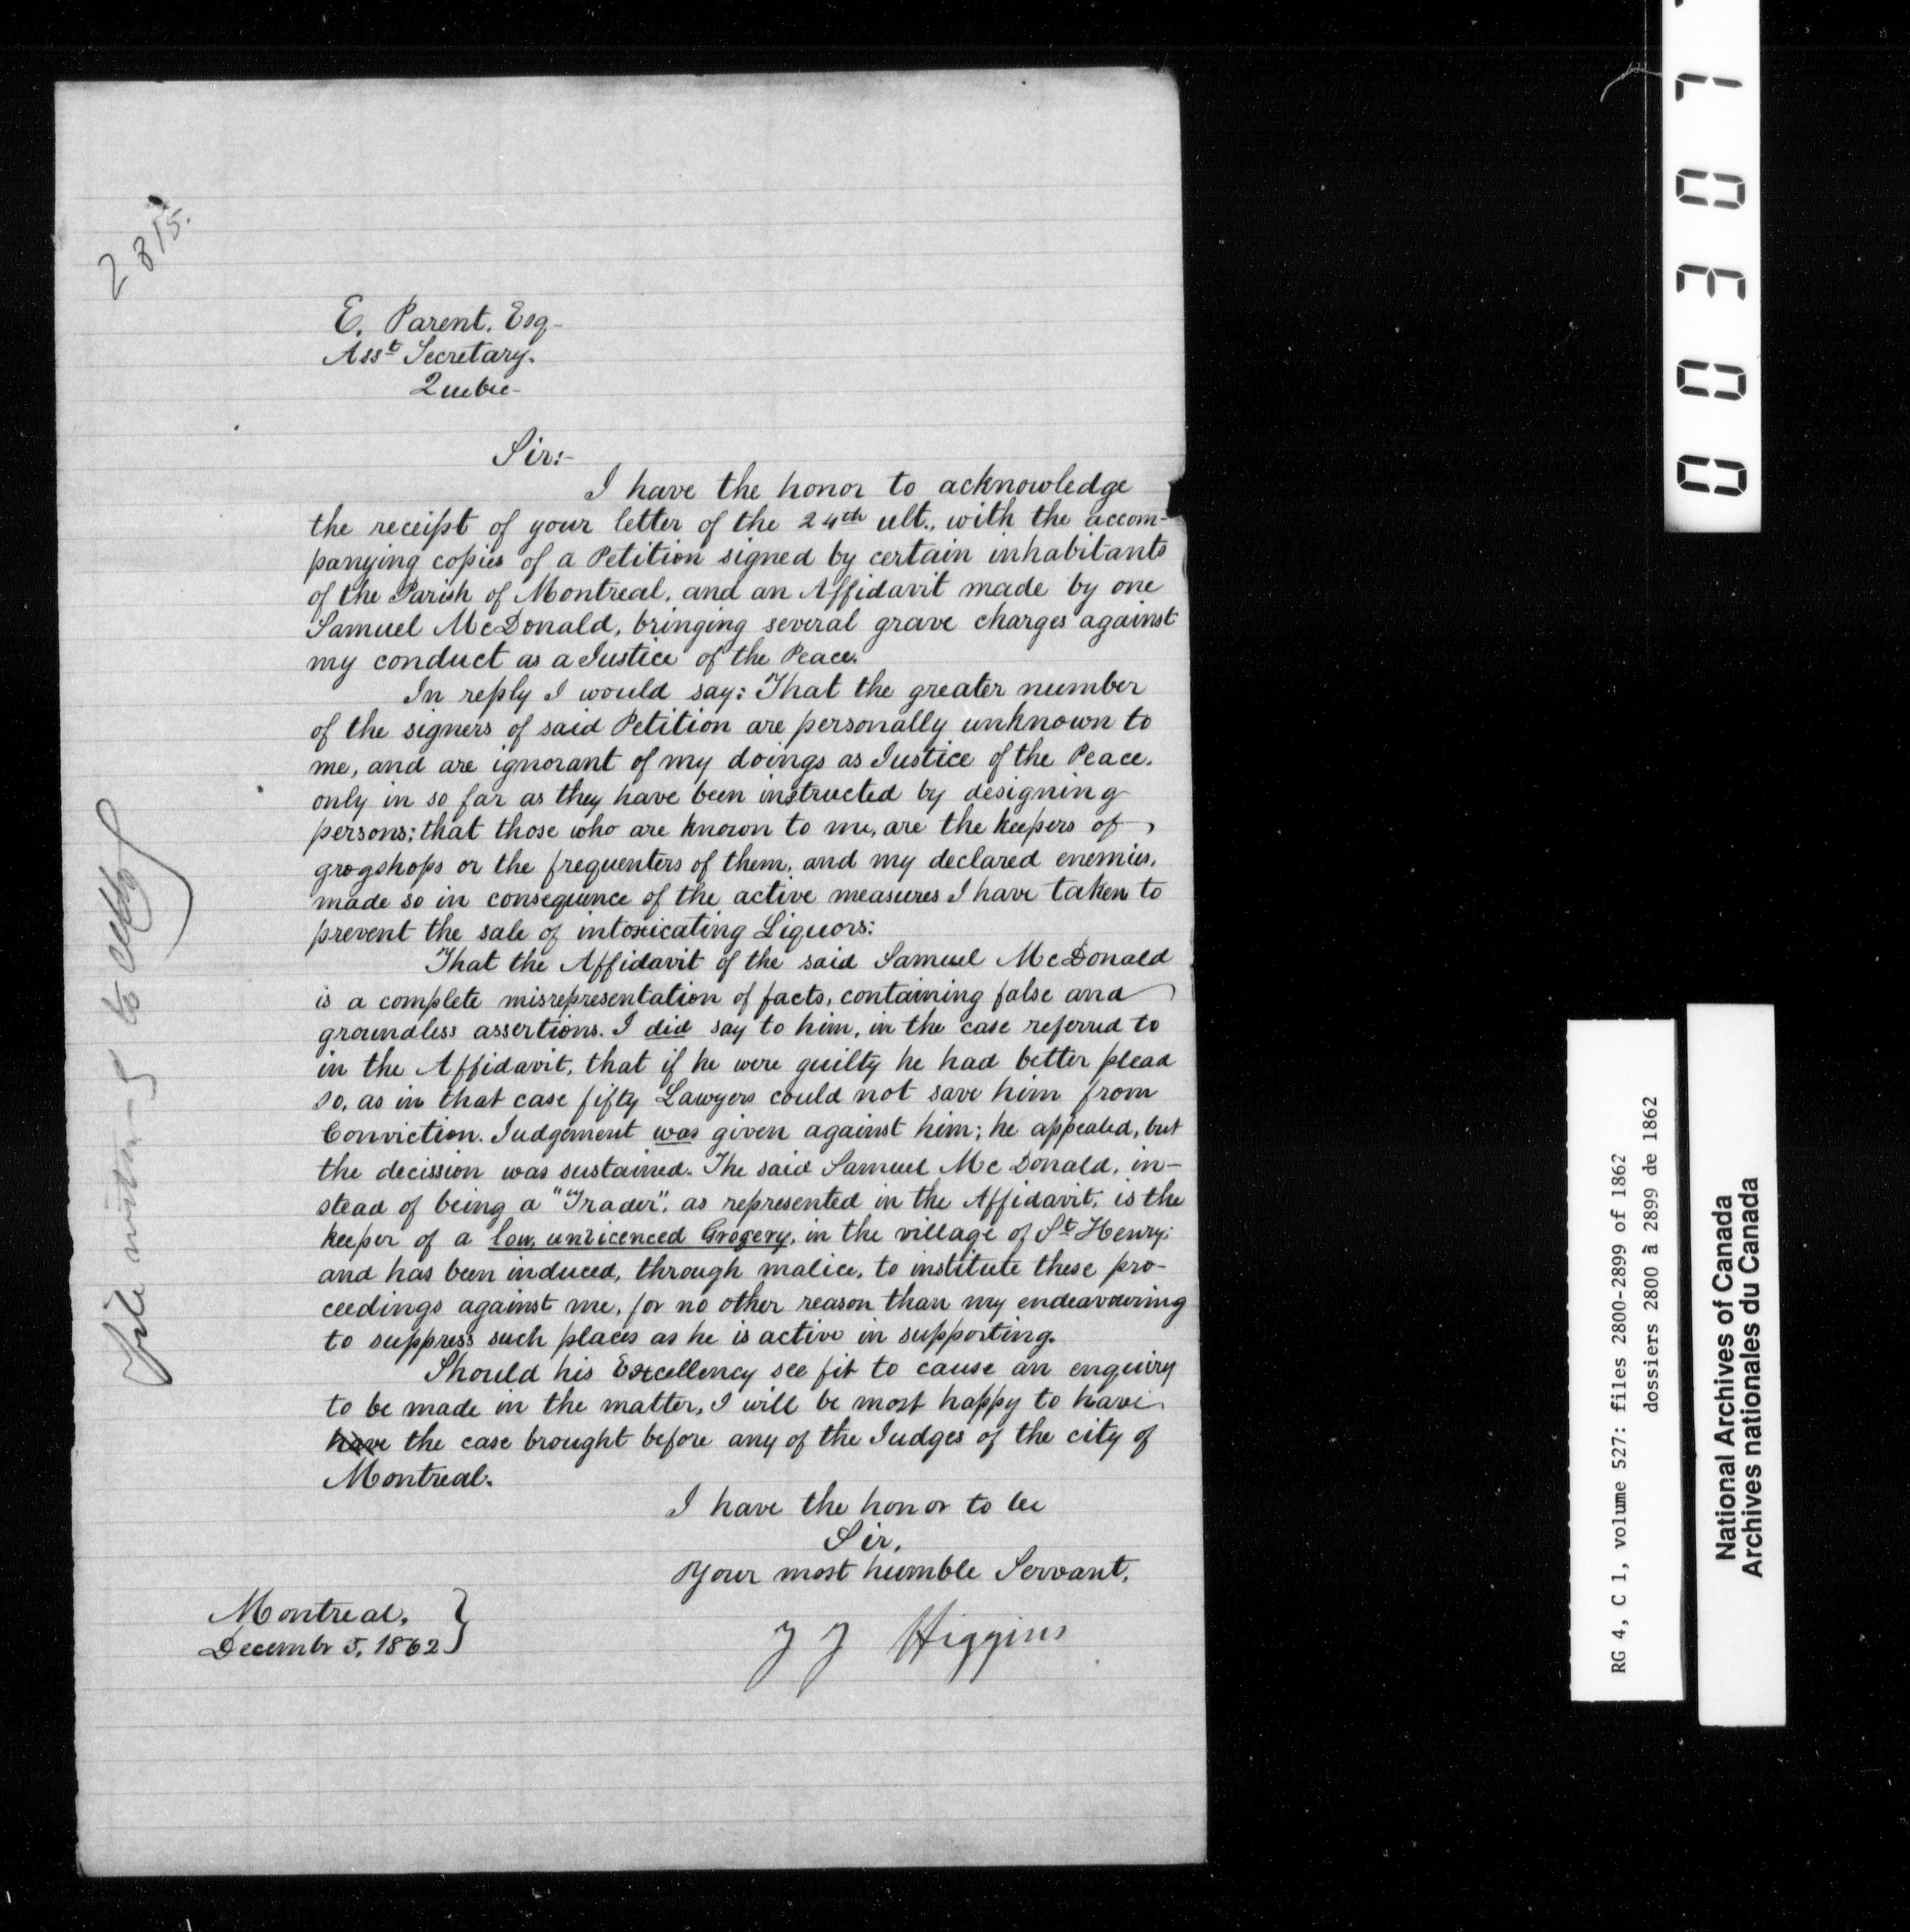 2815.
E. Parent. Esq-
Asst Secretary.
Quebec-
Sir:-
I have the honor to acknowledge
the receipt of your letter of the 24th ult., with the accom-
panying copies of a Petition signed by certain inhabitants
of the Parish of Montreal, and an Affidavit made by one
Samuel McDonald, bringing several grave charges against
my conduct as a Justice of the Peace.
In reply I would say: That the greater number
of the signers of said Petition are personally unknown to
me, and are ignorant of my doings as Justice of the Peace.
only in so far as they have been instructed by designing
persons; that those who are known to me, are the keepers of
grogshops or the frequenters of them, and my declared enemies,
made so in consequence of the active measures I have taken to
prevent the sale of intoxicating Liquors:
That the Affidavit of the said Samuel McDonald
is a complete misrepresentation of facts, containing false and
groundless assertions. I did say to him, in the case referred to
in the Affidavit, that if he were guilty he had better plead
so, as in that case fifty Lawyers could not save him from
Conviction. Judgement was given against him; he appealed, but
the decission was sustained. The said Samuel McDonald, in-
stead of being a "Trader", as represented in the Affidavit, is the
keeper of a low, unlicenced Grogery, in the village of St Henry;
and has been induced, through malice, to institute these pro-
ceedings against me, for no other reason than my endeavouring
to suppress such places as he is active in supporting.
Should his Excellency see fit to cause an enquiry
to be made in the matter, I will be most happy to have
have the case brought before any of the Judges of the city of
Montreal.
I have the honor to be
Sir,
Your most humble Servant,
J J Higgins
Montreal,
Decembr 5, 1862
File
00307
RG 4, C 1, volume 527: files 2800-2899 of 1862
dossiers 2800 à 2899 de 1862
National Archives of Canada
Archives nationales du Canada